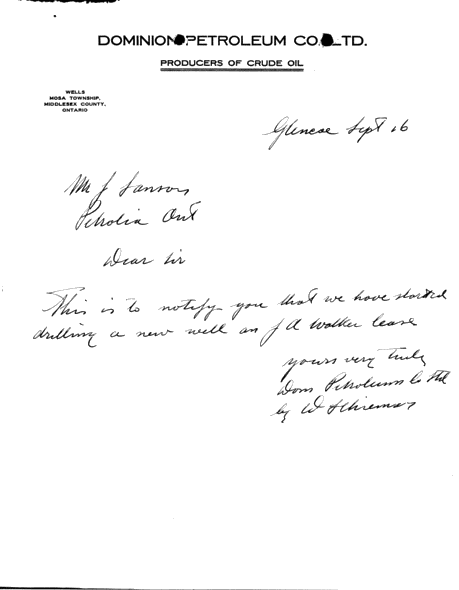 DOMINION PETROLEUM CO. LTD.
PRODUCERS OF CRUDE OIL
WELLS
MOSA TOWNSHIP,
MIDDLESEX COUNTY,
ONTARIO
Glencoe Sept 16
Mr J
Petrolia Ont
Dear Sir
This is to notify you that we have started
drilling a new well on J A Walker lease
yours very truly
Dom Petroleum Co Ltd
by W